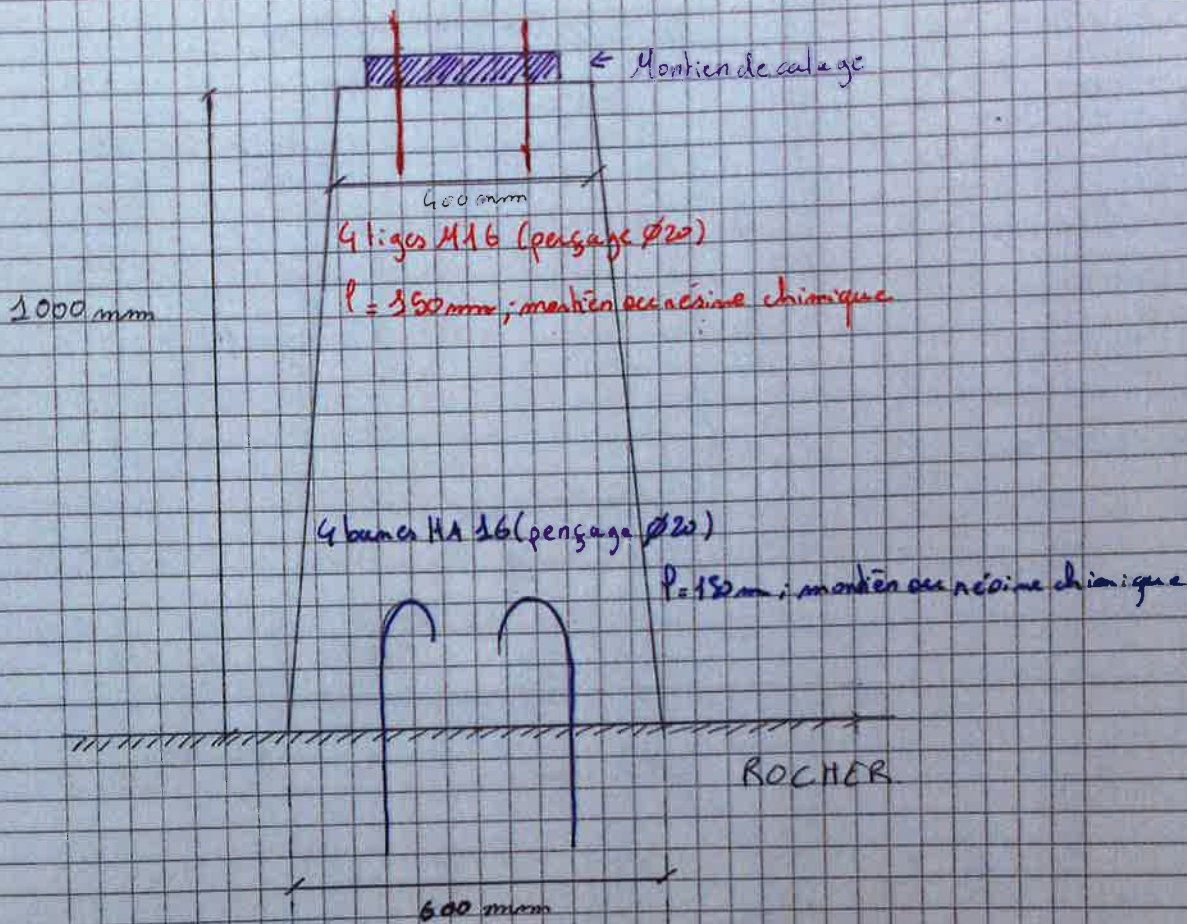 ← Mortier de calage
400 mm
4 tiges M16 (perçage Ø20)
l = 150 mm ; mortier ou résine chimique
1000 mm
4 barres HA 16 (perçage Ø20)
l = 150 mm ; mortier ou résine chimique
ROCHER
600 mm